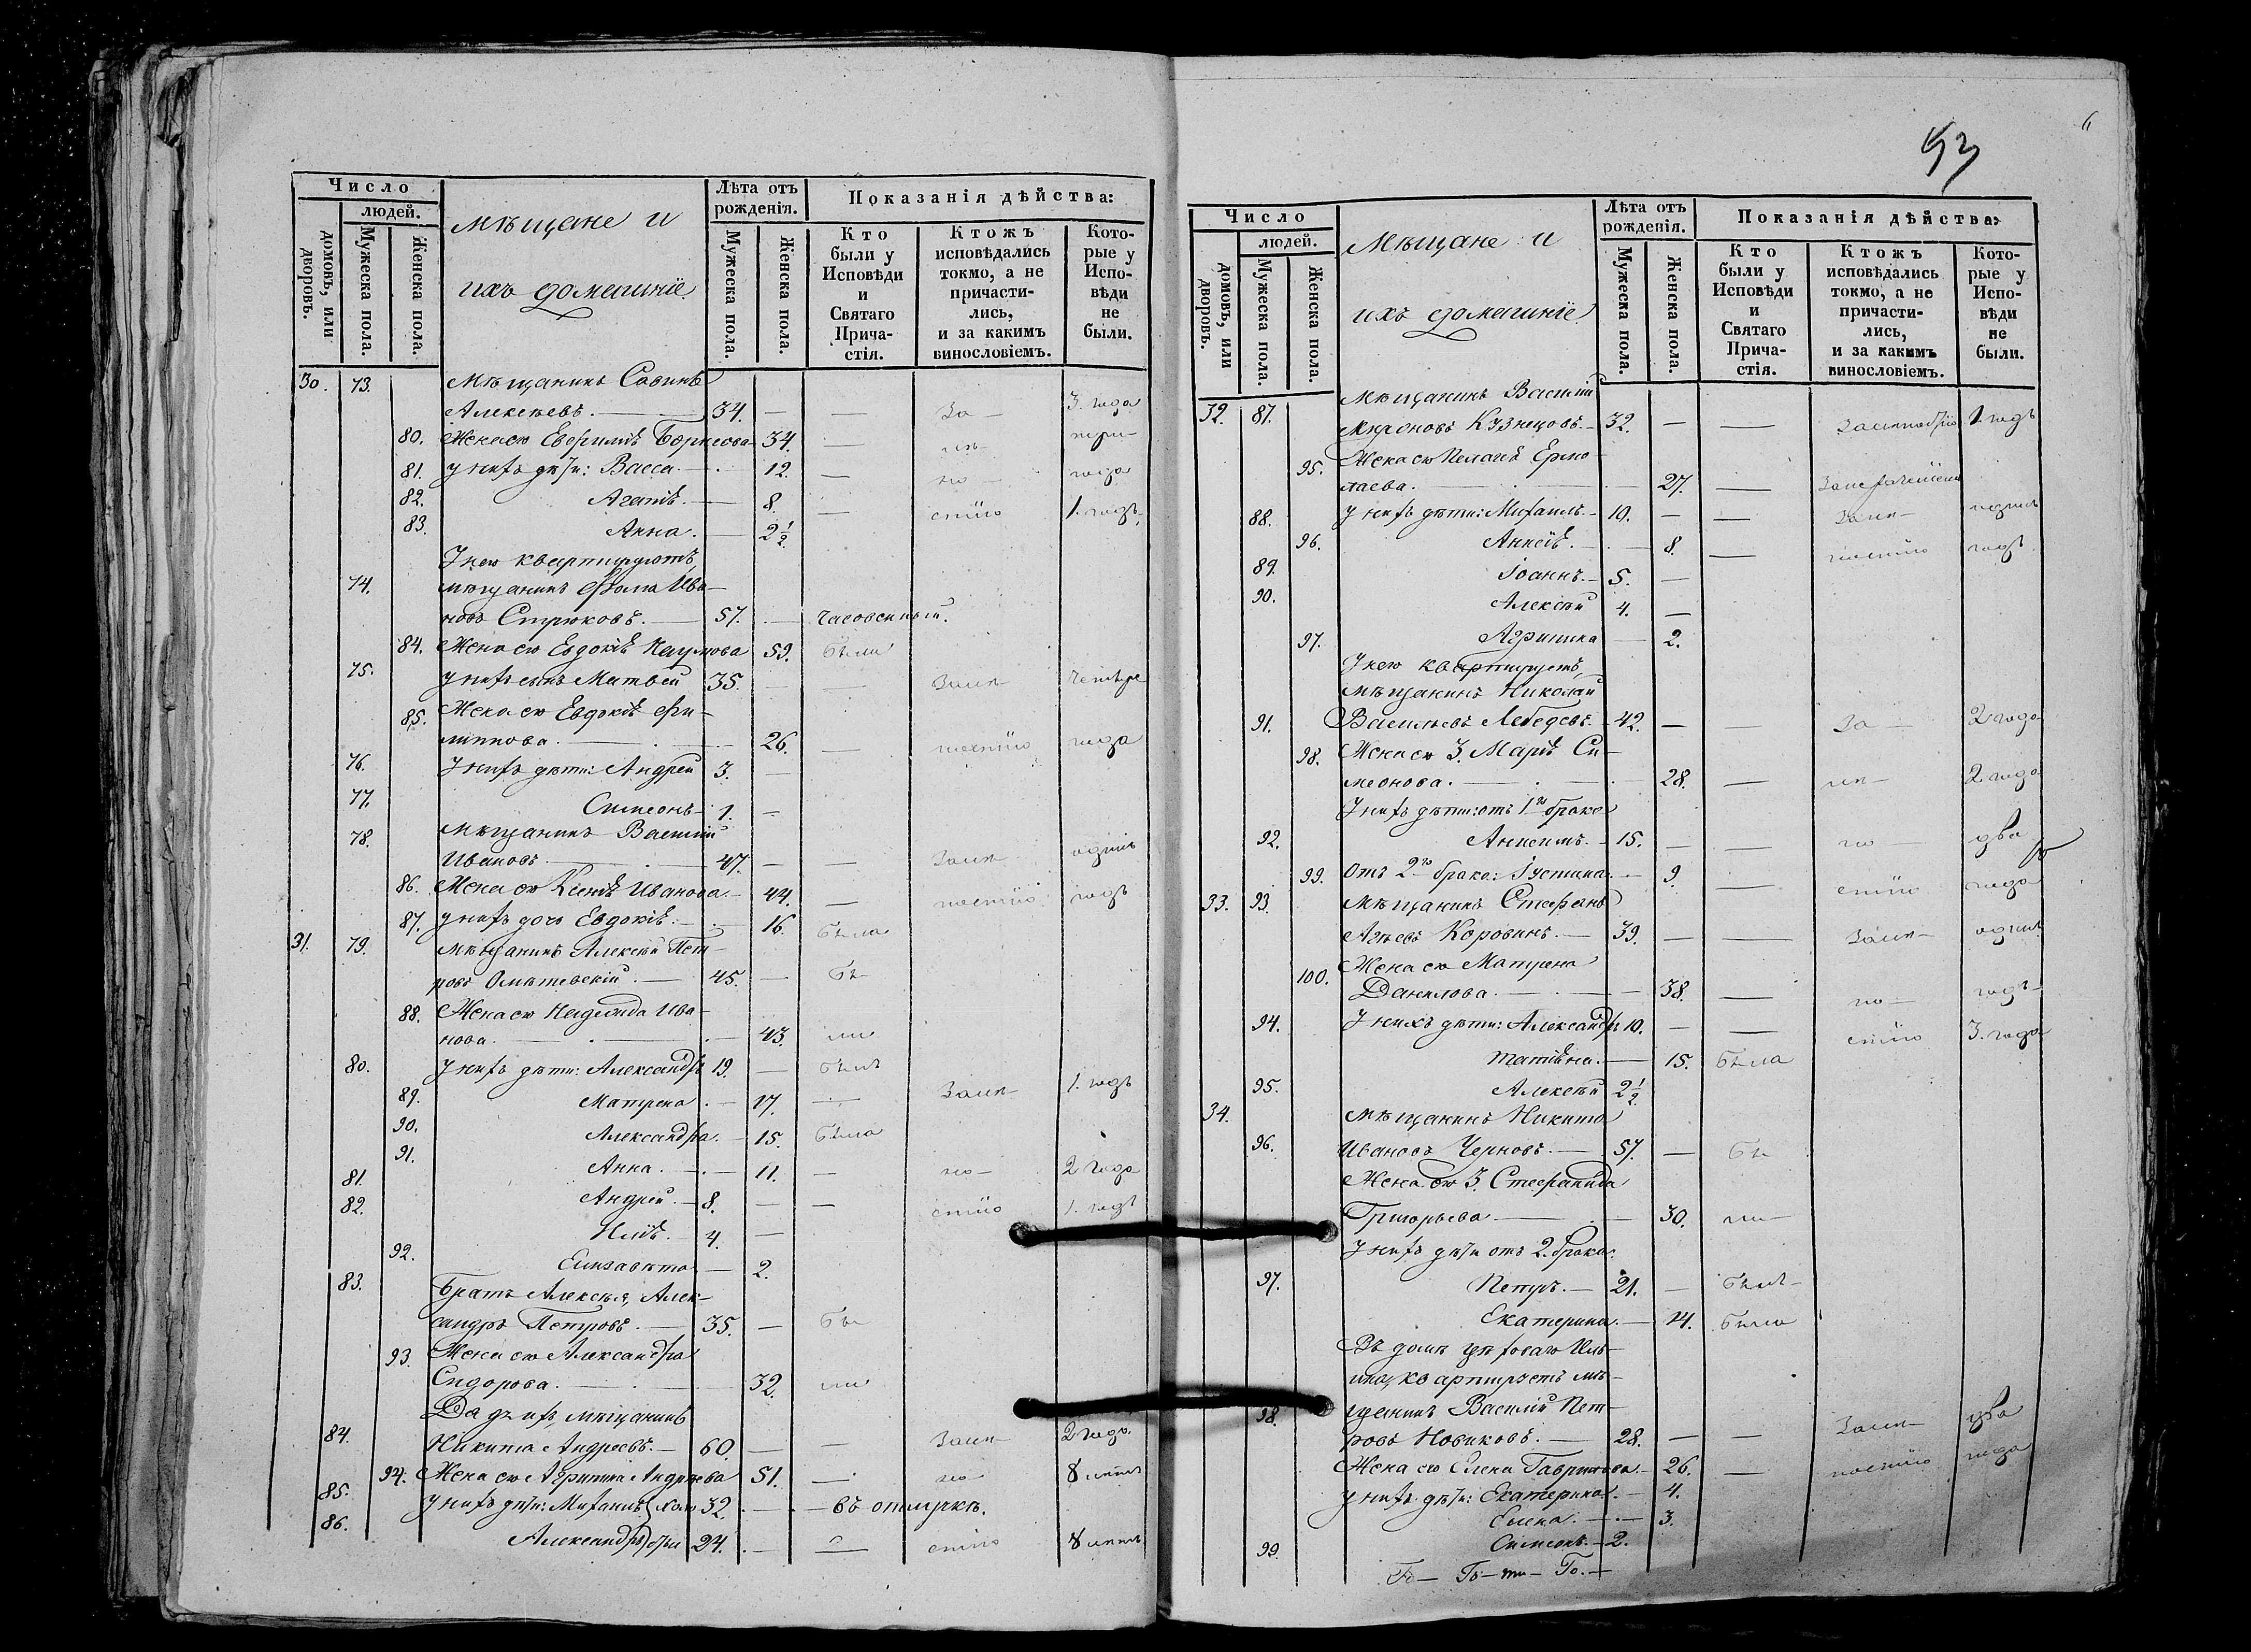 Число
людей.
домовъ, или дворовъ.
Мужеска пола.
Женска пола.
Мѣщане и
ихъ домашніе.
Лѣта отъ рожденія.
Мужеска пола.
Женска пола.
Показанія дѣйства:
Кто были у Исповѣди и Святаго Прича-стія.
Ктожъ исповѣдались токмо, а не причасти-лись, и за какимъ винословіемъ.
Кото-рые у Испо-вѣди не были.
30. 73. Мѣщанинъ Савинъ
Алексѣевъ. — 34. — — За — 3. года
80. Жена его Евфимія Борисова — 34. —
81. У нихъ дѣти: Васса. — 12. — года
82. Агафія. — 8. — стію 1. годъ
83. Анна. — 2½.
У него квартируютъ,
74. мѣщанинъ Ѳома Ива-
новъ Стрюковъ. — 57. —
84. Жена его Евдокія Наумова 59. были
75. У нихъ сынъ Матвей 35. — — Заня- четыре
85. Жена его Евдокія Фи-
липпова. — 26. — года
76. У нихъ дѣти: Андрей 3. —
77. Симеонъ — 1. —
78. Мѣщанинъ Василій
Ивановъ. — 47. — — одинъ
86. Жена его Ксенія Иванова — 44. — годъ
87. У нихъ дочь Евдокія. — 16. была
31. 79. Мѣщанинъ Алексѣй Пет-
ровъ — 45. — бы-
88. Жена его Надежда Ива-
нова. — 43. ли
80. У нихъ дѣти: Александръ 19. — былъ
89. Матрена. — 17. — 1. годъ
90. Александра. — 15. была
91. Анна. — 11. — по — 2 года
81. Андрей. — 8. — — стію 1. годъ
82. Илія. — 4. —
92. Елизавета — 2.
83. Братъ Алексѣя, Алек-
сандръ Петровъ. — 35. — бы-
93. Жена его Александра
Сидорова. — 32. ли
Дядя ихъ, мѣщанинъ
84. Никита Андреевъ. — 60. — — 2 года.
94. Жена его Агрипина Андреева 51. — по — 8 лѣтъ
85. У нихъ дѣти: Михаилъ 32. — въ отлучкѣ.
86. Александръ 24. — — стію 8 лѣтъ
93
Число
людей.
домовъ, или дворовъ.
Мужеска пола.
Женска пола.
Мѣщане и
ихъ домашніе.
Лѣта отъ рожденія.
Мужеска пола.
Женска пола.
Показанія дѣйства:
Кто были у Исповѣди и Святаго Прича-стія.
Ктожъ исповѣдались токмо, а не причасти-лись, и за какимъ винословіемъ.
Кото-рые у Испо-вѣди не были.
Мѣщанинъ Василій
32. 87. Мироновъ Кузнецовъ. — 32. — — 1. годъ
95. Жена его Пелагія Ермо-
лаева. — 27. —
88. У нихъ дѣти: Михаилъ. — 10. — — одинъ
96. Анисія. — 8. — годъ
89. Іоаннъ. — 5. —
90. Алексѣй 4. —
97. Агрипина — 2.
У него квартируетъ,
мѣщанинъ Николай
91. Васильевъ Лебедевъ. — 42. — — За — 2 года
98. Жена его 3. Марія Си-
меонова. — 28. — 2 года
У нихъ дѣти: отъ 1го брака
92. Анисимъ. — 15. — — по — два
99. Отъ 2го брака: Іустина. — 9. — стію года
33. 93. Мѣщанинъ Стефанъ
Коровинъ. — 39. — — одинъ
100. Жена его Матрена
Данилова. — 38. — по — годъ
94. У нихъ дѣти: Александръ 10. — — стію 3. года
Татіана. — 15. была
95. Алексѣй 2½
34. Мѣщанинъ Никита
96. Ивановъ Черновъ. — 57. — бы-
Жена его 3. Стефанида
Григорьева — 30. ли —
У нихъ дѣти отъ 2. брака:
97. Петръ. — 21. — былъ —
Екатерина. — 14. была
Въ домѣ цеховаго Иль-
ина, квартируетъ мѣ-
98. щанинъ Василій Пет-
ровъ Новиковъ. — 28. — — два
Жена его Елена Гаврилова — 26. — года
У нихъ дѣти: Екатерина. — 4.
Елена. — 3.
99. Симеонъ. — 2.